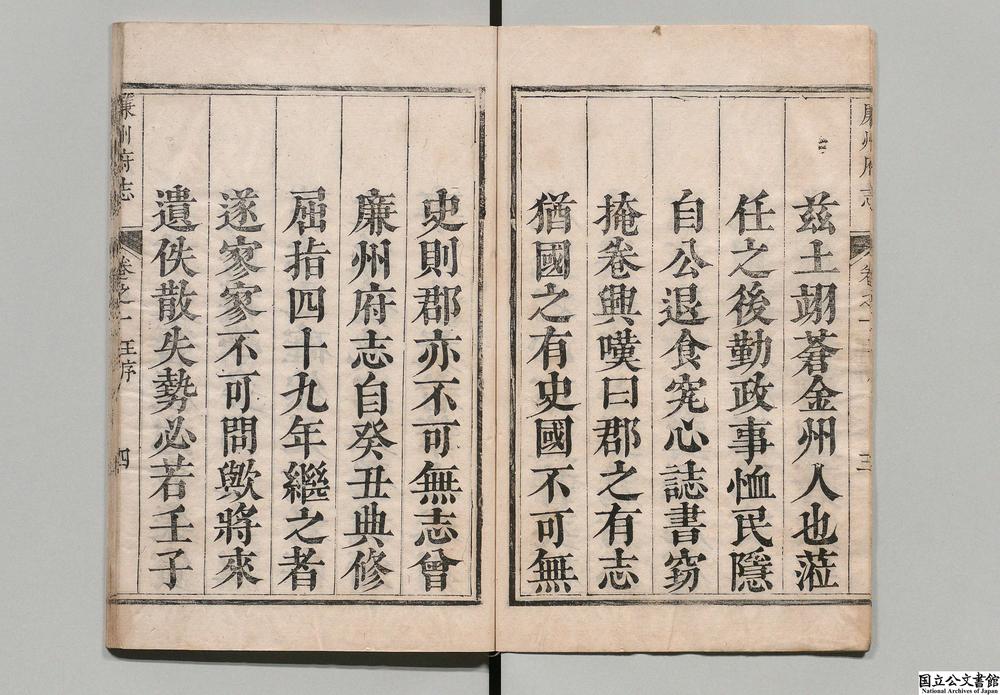 廉州府志
卷之一
三
茲土翊蒼金州人也蒞
任之後勤政事恤民隱
自公退食究心誌書窃
掩卷興嘆曰郡之有志
猶國之有史國不可無
史則郡亦不可無志曾
廉州府志自癸丑典修
屈指四十九年繼之者
遂寥寥不可問歟將來
遺佚散失勢必若壬子
廉州府志
卷之一
王序
四
国立公文書館
National Archives of Japan